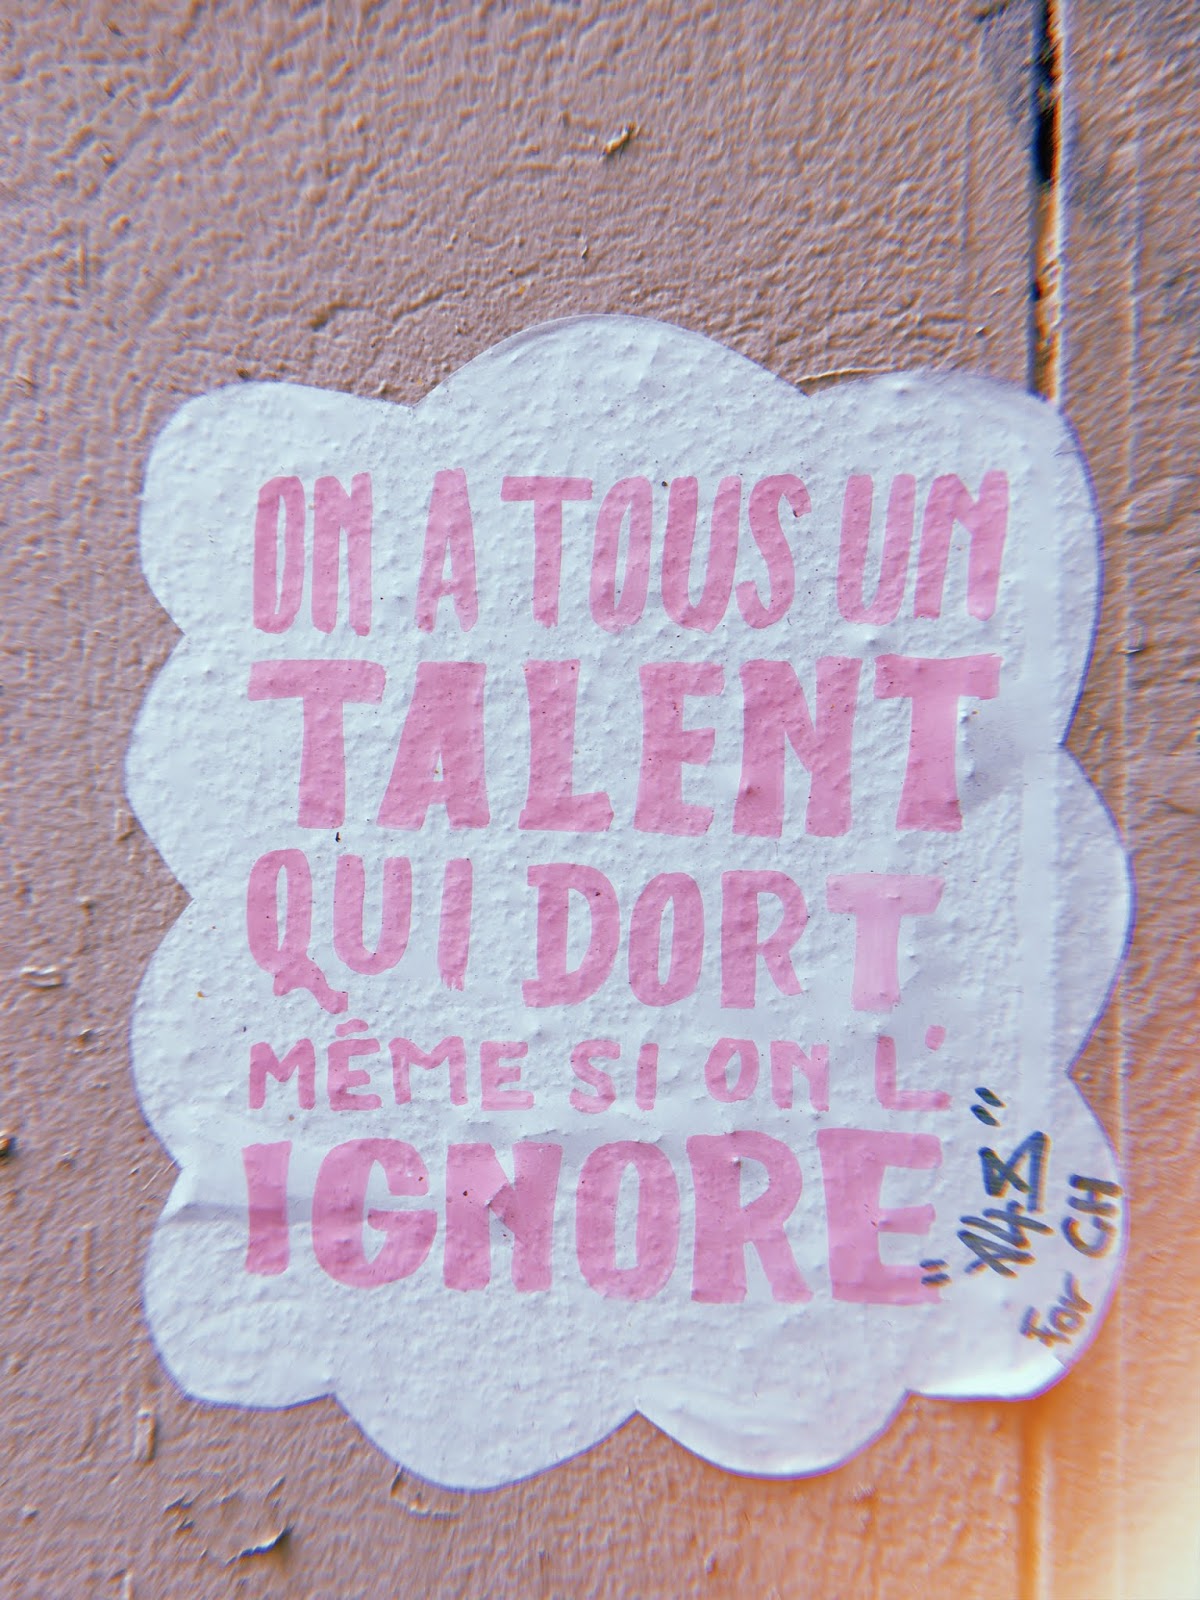 ON A TOUS UN
TALENT
QUI DORT
MÊME SI ON L'
IGNORE
For CH